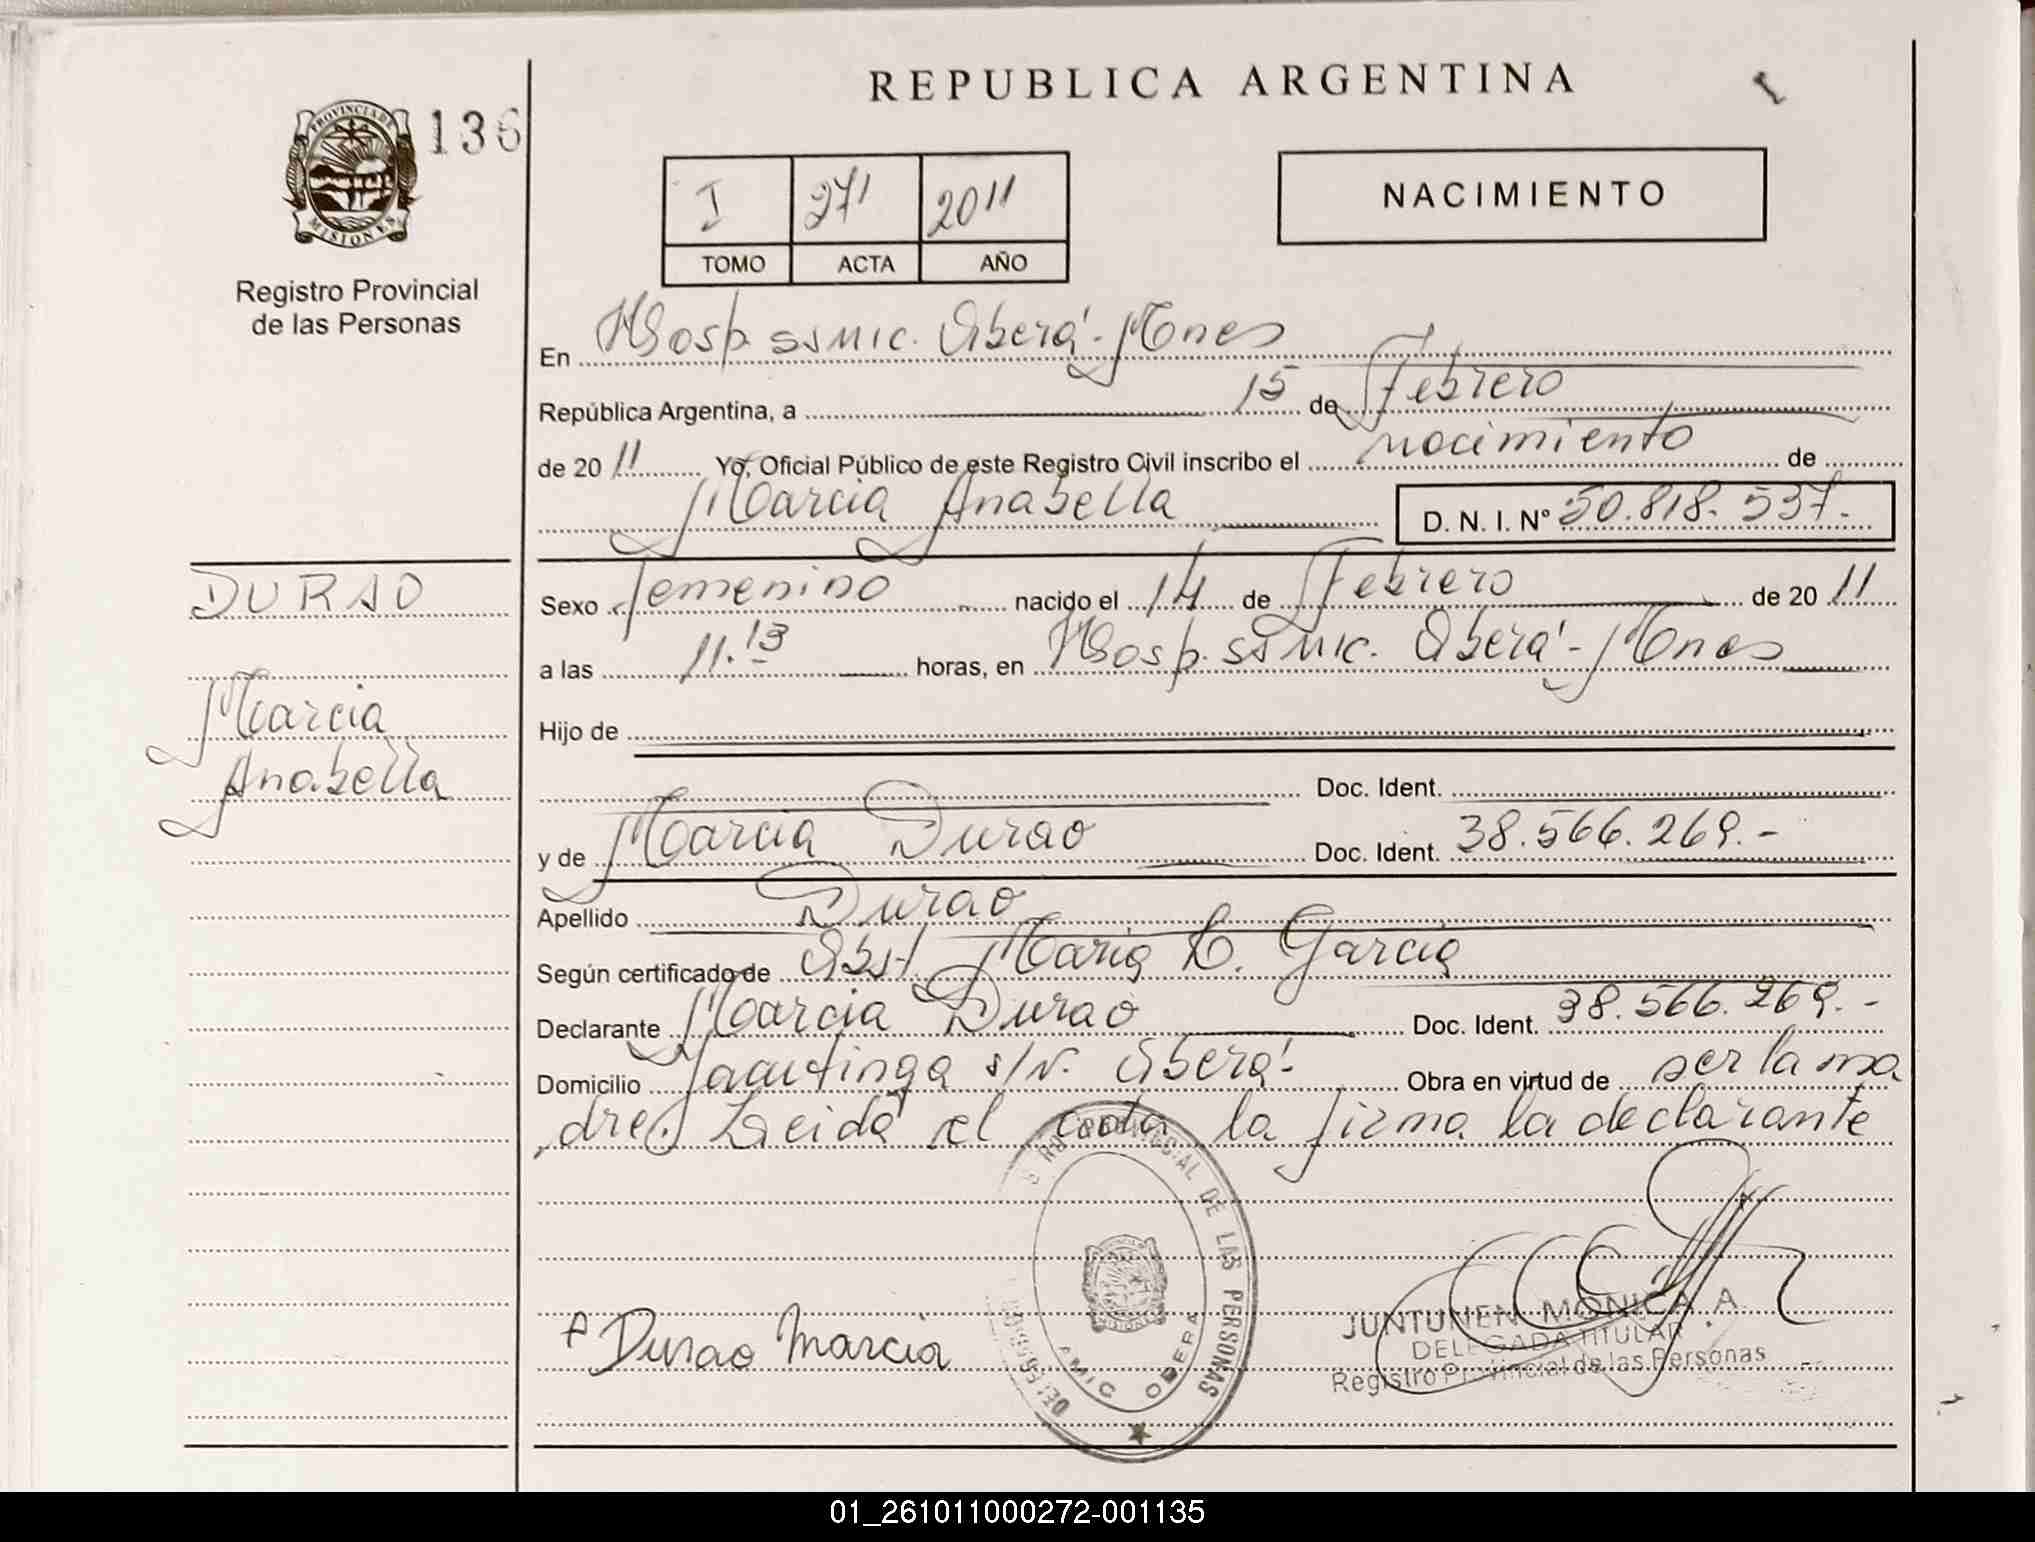 REPUBLICA ARGENTINA
PROVINCIA DE
MISIONES
136
Registro Provincial
de las Personas
I 271 2011
TOMO ACTA AÑO
NACIMIENTO
En Hosp. SSMIC. Oberá - Mnes
República Argentina, a 15 de Febrero
de 20 11 Yo, Oficial Público de este Registro Civil inscribo el nacimiento de
Marcia Anabella D. N. I. Nº 50.818.537.-
DURAO
Marcia
Anabella
Sexo femenino nacido el 14 de Febrero de 20 11
a las 11.13 horas, en Hosp. SSMIC. Oberá - Mnes
Hijo de
Doc. Ident.
y de Marcia Durao Doc. Ident. 38.566.269.-
Apellido Durao
Según certificado de Obst Maria L. Garcia
Declarante Marcia Durao Doc. Ident. 38.566.269.-
Domicilio Yacutinga s/N. Oberá - Obra en virtud de ser la ma
dre. Leida el acta la firma la declarante
PROVINCIAL DE LAS PERSONAS
MISIONES
AMIC OBERA
Durao Marcia
JUNTUNEN MONICA A
DELEGADA TITULAR
Registro Provincial de las Personas
01_261011000272-001135